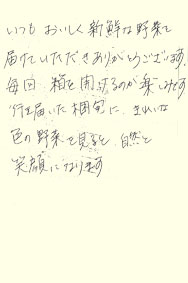 いつも おいしく新鮮な野菜を
届けていただきありがとうございます。
毎回、箱を開けるのが楽しみです
行き届いた梱包に、きれいな
色の野菜を見ると、自然と
笑顔になります